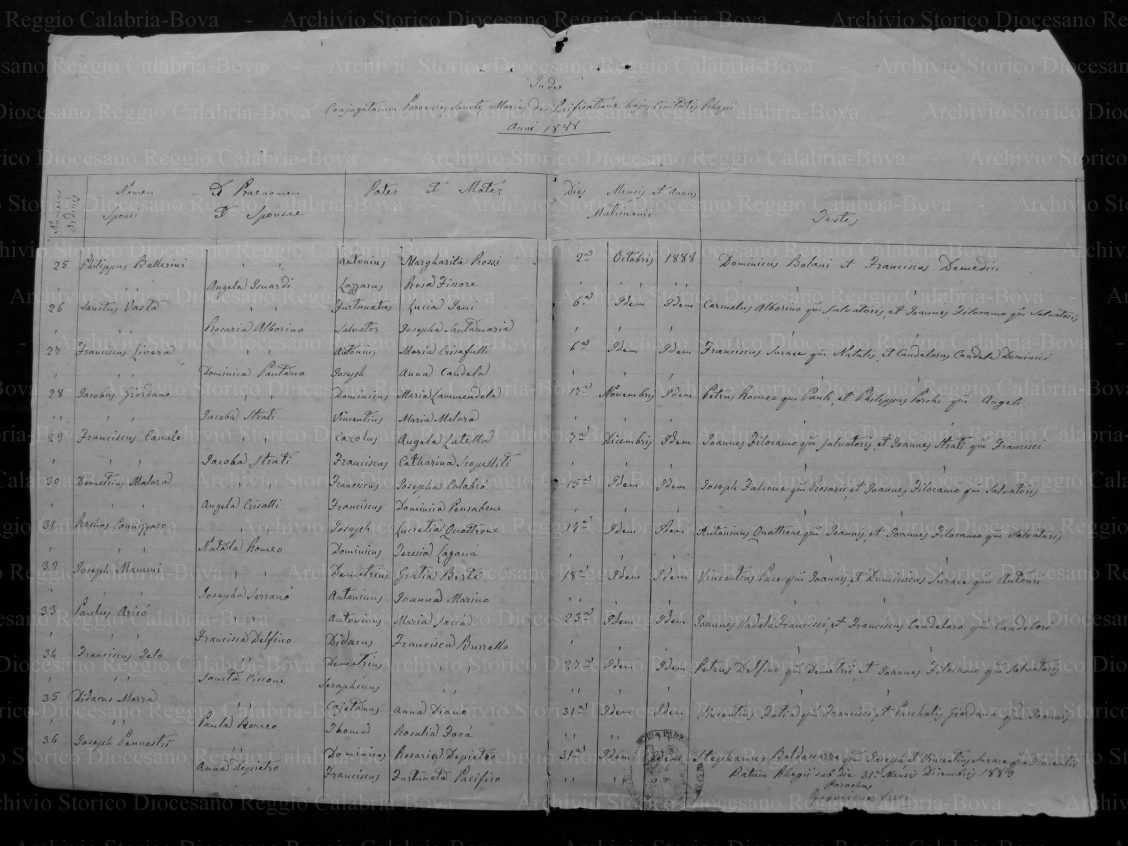 Index
Conjugatorum Paroeciae Sanctae Mariae de Purificatione hujus Civitatis Rhegii
Anni 1888
Numerus Ordinis Nomen Et Praenomen Pater Et Mater Dies Mensis et Annus Testes
Sponsi Et Sponsae Matrimonii
25 Philippus Ballerini " " Antonius Margharita Rossi 2ª Octobris 1888 Dominicus Bolani et Franciscus Demedici
" " " Angela Lazzarus Rosa
26 Sanctus Vasta " " Fortunatus Lucia 6ª Idem Idem Carmelus Alborino qm Salvatoris, et Joannes Filocamo qm Salvatoris
" " " Rosaria Alborino Salvator Josepha Santamaria " " "
27 Franciscus Livera " " Antonius Maria Crisafulli 6ª Idem Idem Franciscus Surace qm Natalis, et Candelorus Candela Dominici
" " " Dominica Pantano Joseph Anna Candela " " "
28 Jacobus Giordano " " Dominicus Maria 17ª Novembris Idem Petrus Romeo qm Pauli, et Philippus qm Angeli
" " " Jacoba Strati Vincentius Maria Malara " " "
29 Franciscus Canale " " Carolus Angela Latella 7ª Dicembris Idem Joannes Filocamo qm Salvatoris, et Joannes Strati qm Francisci
" " " Jacoba Strati Franciscus Catharina Scopelliti " " "
30 Demetrius Malara " " Franciscus Josepha Calabrò 15ª Idem Idem Joseph Falcone qm Rosarii et Joannes Filocamo qm Salvatoris
" " " Angela Crisalli Franciscus Dominica Pensabene " " "
31 Rochus Cannizzaro " " Joseph Lucretia Quattrone 17ª Idem Idem Antoninus Quattrone qm Joannis, et Joannes Filocamo qm Salvatoris
" " " Natala Romeo Dominicus Teresia Laganà " " "
32 Joseph " " Demetrius Gratia Berti 18ª Idem Idem Vincentius Pace qm Joannis et Dominicus Surace qm Antonii
" " " Josepha Serranò Antoninus Joanna Marino " " "
33 Paulus Aricò " " Antoninus Maria Saccà 23ª Idem Idem Joannes Francisci, et Franciscus Candeloro qm Candelori
" " " Francisca Delfino Didacus Francisca Burrello " " "
34 Franciscus " " Demetrius " " 27ª Idem Idem Petrus Delfino qm Demetrii et Joannes Filocamo qm Salvatoris
" " Sancta Ciccone Seraphinus " " " " "
35 Didacus Marra " " Cajetanus Anna Diano 31ª Idem Idem Vincentius qm Francisci et Paschalis Giordano qm Joannis
" " " Paula Romeo Thoma Rosalia Focà " " "
36 Joseph Pennestrì " " Dominicus Rosaria Depietro 31ª Idem Idem Stephanus Baldassarre qm Joseph et Vincentius Surace qm Vincentii
Anna Depietro Franciscus Furtunata Pacifico " " "
Datum Rhegii sub die 31ª Mensis Dicembris 1889
Parochus